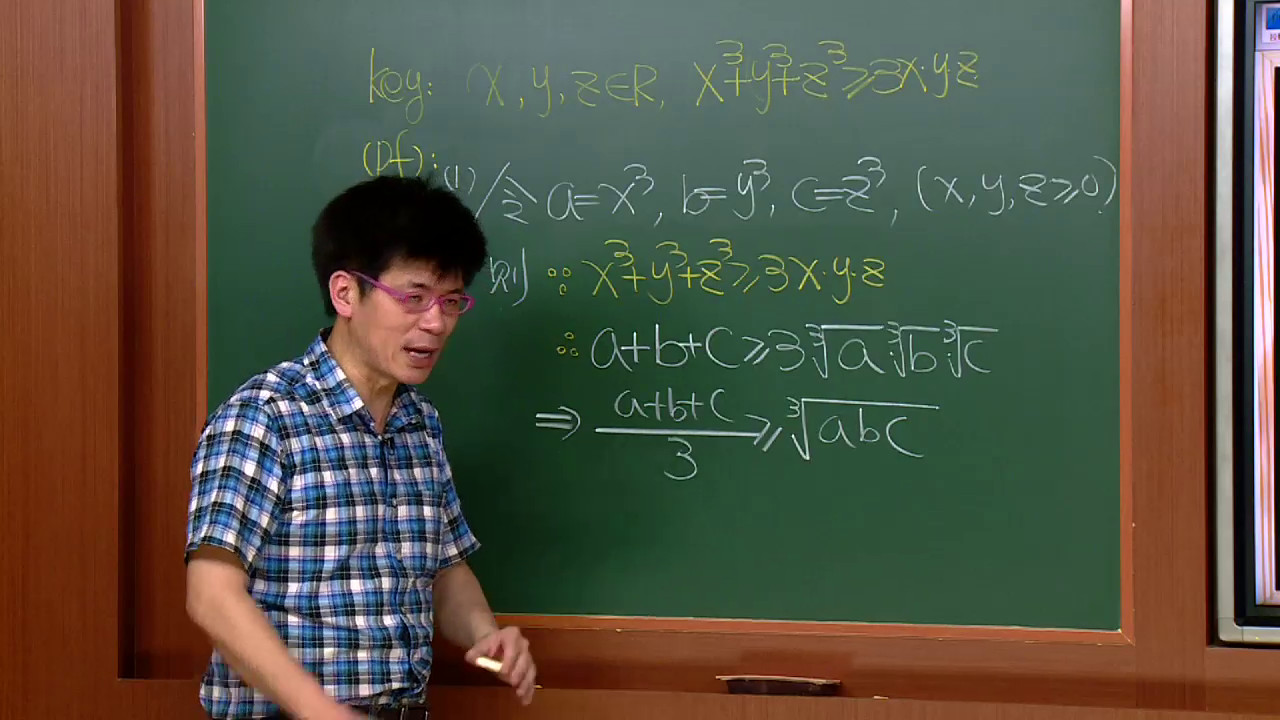 key: x, y, z∈R, x³+y³+z³≥3x·y·z
(pf):
(1) 令 a=x³, b=y³, c=z³, (x, y, z≥0)
則 ∵ x³+y³+z³≥3x·y·z
∴ a+b+c≥3∛a·∛b·∛c
⇒ (a+b+c)/3 ≥ ∛(abc)